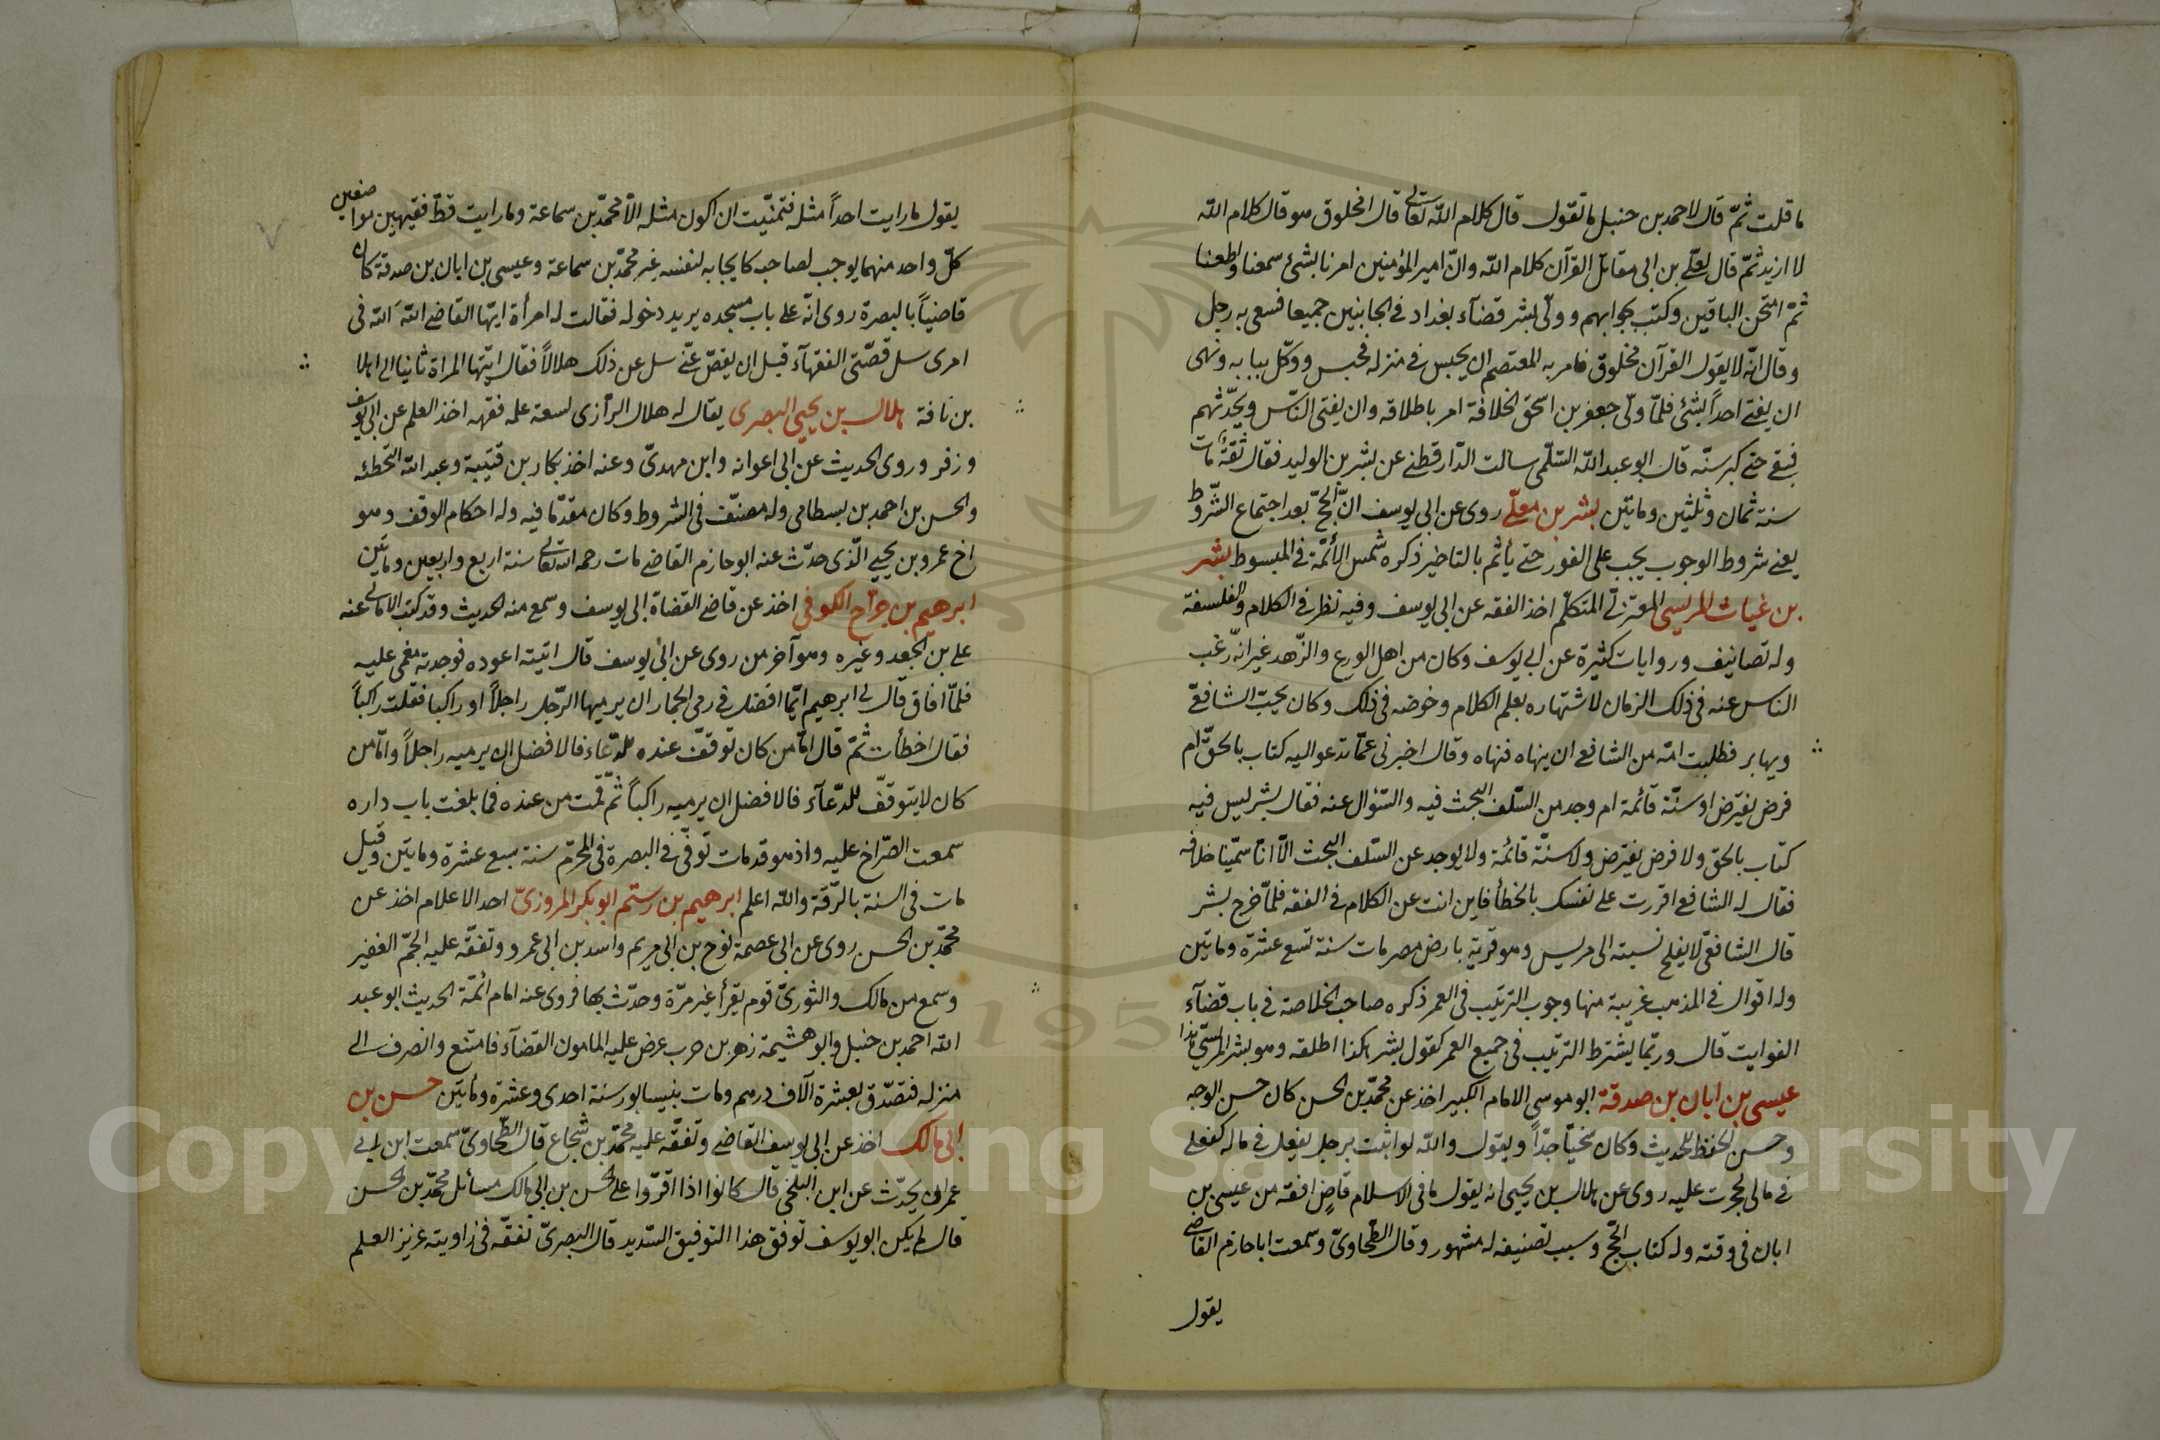 ما قلت ثمّ قال لاحمد بن حنبل ما تقول قال كلام اللّه تعالى قال امخلوق هو قال كلام اللّه
لا ازيد ثمّ قال لعلى بن ابى مقاتل القرآن كلام اللّه وانّ امير المؤمنين امرنا بشئ سمعنا واطعنا
ثمّ امتحن الباقين وكتب بجوابهم وولّى بشر قضآء بغداد فى الجانبين جميعا فسعى به رجل
وقال انّه لا يقول القرآن مخلوق فامر به المعتصم ان يحبس فى منزله فحبس ووكّل ببابه ونهى
ان يفتى احداً بشئ فلمّا ولّى جعفر بن اسحق الخلافة امر باطلاقه وان يفتى النّاس ويحدّثهم
فبقى حتى كبر سنّه قال ابو عبد اللّه السّلمى سالت الدّار قطنى عن بشر بن الوليد فقال ثقة مات
سنة ثمان وثلثين وماتين بشر بن معلّى روى عن ابى يوسف انّ الحجّ بعد اجتماع الشّروط
يعنى شروط الوجوب يجب على الفور حتى يأثم بالتاخير ذكره شمس الأئمّة فى المبسوط بشر
بن غياث المريسى المعتزلى المتكلّم اخذ الفقه عن ابى يوسف وفيه نظر فى الكلام والفلسفة
وله تصانيف وروايات كثيرة عن ابى يوسف وكان من اهل الورع والزّهد غير انّه رغب
الناس عنه فى ذلك الزمان لاشتهاره بعلم الكلام وخوضه فى ذلك وكان يحبّ الشافعىّ
ويهابر فطلبت امّه من الشافعى ان ينهاه فنهاه وقال اخبرنى عمّا تدعو اليه كتاب بالحقّ ام
فرض يفترض او سنّة قائمة ام وجد من السّلف البحث فيه والسّؤال عنه فقال بشر ليس فيه
كتاب بالحق ولا فرض يفترض ولا سنّة قائمة ولا يوجد عن السّلف البحث الاّ انّا سمّينا خلافه
فقال له الشافعى اقررت على نفسك بالخطأ فاين انت عن الكلام فى الفقه فلمّا خرج بشر
قال الشافعىّ لا يفلح نسبته الى مريس وهو قرية بارض مصر مات سنة تسع عشرة وماتين
وله اقوال فى المذهب غريبة منها وجوب الترتيب فى العمر ذكره صاحب الخلاصة فى باب قضآء
الفوايت قال وربّما يشترط الترتيب فى جميع العمر كقول بشر هكذا اطلقه وهو بشر المريسىّ هذا
عيسى بن ابان بن صدقة ابو موسى الامام الكبير اخذ عن محمّد بن الحسن كان حسن الوجه
وحسن الحفظ للحديث وكان سخيّا جدّاً ويقول واللّه لو اتيت برجل يفعل فى ماله كفعلى
فى مالى لحجرت عليه روى عن هلال بن يحيى انه يقول ما فى الاسلام قاضٍ افقه من عيسى بن
ابان فى وقته وله كتاب الحجّ وسبب تصنيفه له مشهور وقال الطّحاوىّ وسمعت ابا حازم القاضى
يقول
يقول ما رايت احداً مثله فتمنّيت ان اكون مثله الاّ محمّد بن سماعة وما رايت قطّ فقيهين متواصفين
كلّ واحد منهما يوجب لصاحبه كايجابه لنفسه غير محمّد بن سماعة وعيسى بن ابان بن صدقة كان
قاضياً بالبصرة روى انّه على باب مسجده يريد دخوله فقالت له امرأة ايّها القاضى اللّه اللّه فى
امرى سل قصّتى الفقهآء قبل ان يقصّ عنّى سل عن ذلك هلالاً فقال ايّتها المراة ثانيا الى اهلا
بن نافة هلال بن يحيى البصرى يقال له هلال الرأزى لسعة علمه فقهه اخذ العلم عن ابى يوسف
وزفر وروى الحديث عن ابى اعوانه وابن مهدىّ وعنه اخذ بكار بن قتيبة وعبد اللّه التخطئه
والحسن بن احمد بن بسطامى وله مصنّف فى الشروط وكان مقدّما فيه وله احكام الوقف وهو
اخ عمرو بن يحيى الّذى حدّث عنه ابو حازم القاضى مات رحمه الله تعالى سنة اربع واربعين وماتين
ابرهيم بن جرّاح الكوفى اخذ عن قاضى القضاة ابى يوسف وسمع منه الحديث وقد كتب الامالى عنه
على بن الجعد وغيره وهو آخر من روى عن ابى يوسف قال اتيته اعوده فوجدته مغمى عليه
فلمّا افاق قال لى ابرهيم ايّما افضل فى رمى الجمار ان يرميها الرّجل راجلاً او راكبا فقلت راكباً
فقال اخطأت ثمّ قال امّا من كان توقّف عنده للدّعاء فالافضل ان يرميه راجلاً وامّا من
كان لا يتوقّف للدّعآء فالافضل ان يرميه راكباً ثمّ قمت من عنده فما بلغت باب داره
سمعت الصّراخ عليه واذ هو قد مات توفّى فى البصرة فى المحرّم سنة سبع عشرة وماتين وقيل
مات فى السنة بالرّقة واللّه اعلم ابرهيم بن رستم ابو بكر المروزىّ احد الاعلام اخذ عن
محمّد بن الحسن روى عن ابى عصمة نوح بن ابى مريم واسد بن ابى عمرو وتفقّه عليه الجمّ الغفير
وسمع من مالك والثورىّ قوم يقرأ غير مرّة وحدّث بها فروى عنه امام ائمّة الحديث ابو عبد
اللّه احمد بن حنبل وابو هشيمة زهر بن حرب عرض عليه المامون القضآء فامتنع وانصرف الى
منزله فتصدّق بعشرة آلاف درهم ومات بنيسابور سنة احدى وعشرة ومأتين حسن بن
ابى مالك اخذ عن ابى يوسف القاضى وتفقّه عليه محمّد بن شجاع قال الطّحاوىّ سمعت ابن ابى
عمران يحدّث عن ابن البلخى قال كانوا اذا اقرّوا على الحسن بن ابى مالك مسائل محمّد بن الحسن
قال لم يكن ابو يوسف توفق هذا التوفيق السّديد قال البصرىّ تفقّه فى زاويته عزيز العلم
Copyright © King Saud University
195